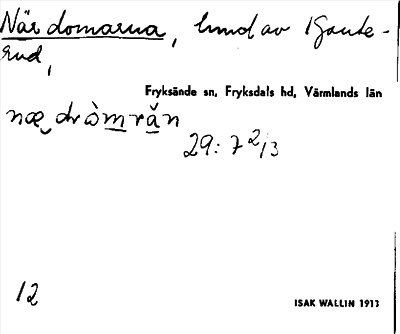 När domarna, hmd av Gaute-
rud,
Fryksände sn, Fryksdals hd, Värmlands län
næ dròmrǎn
29: 7 2/3
12
ISAK WALLIN 1913